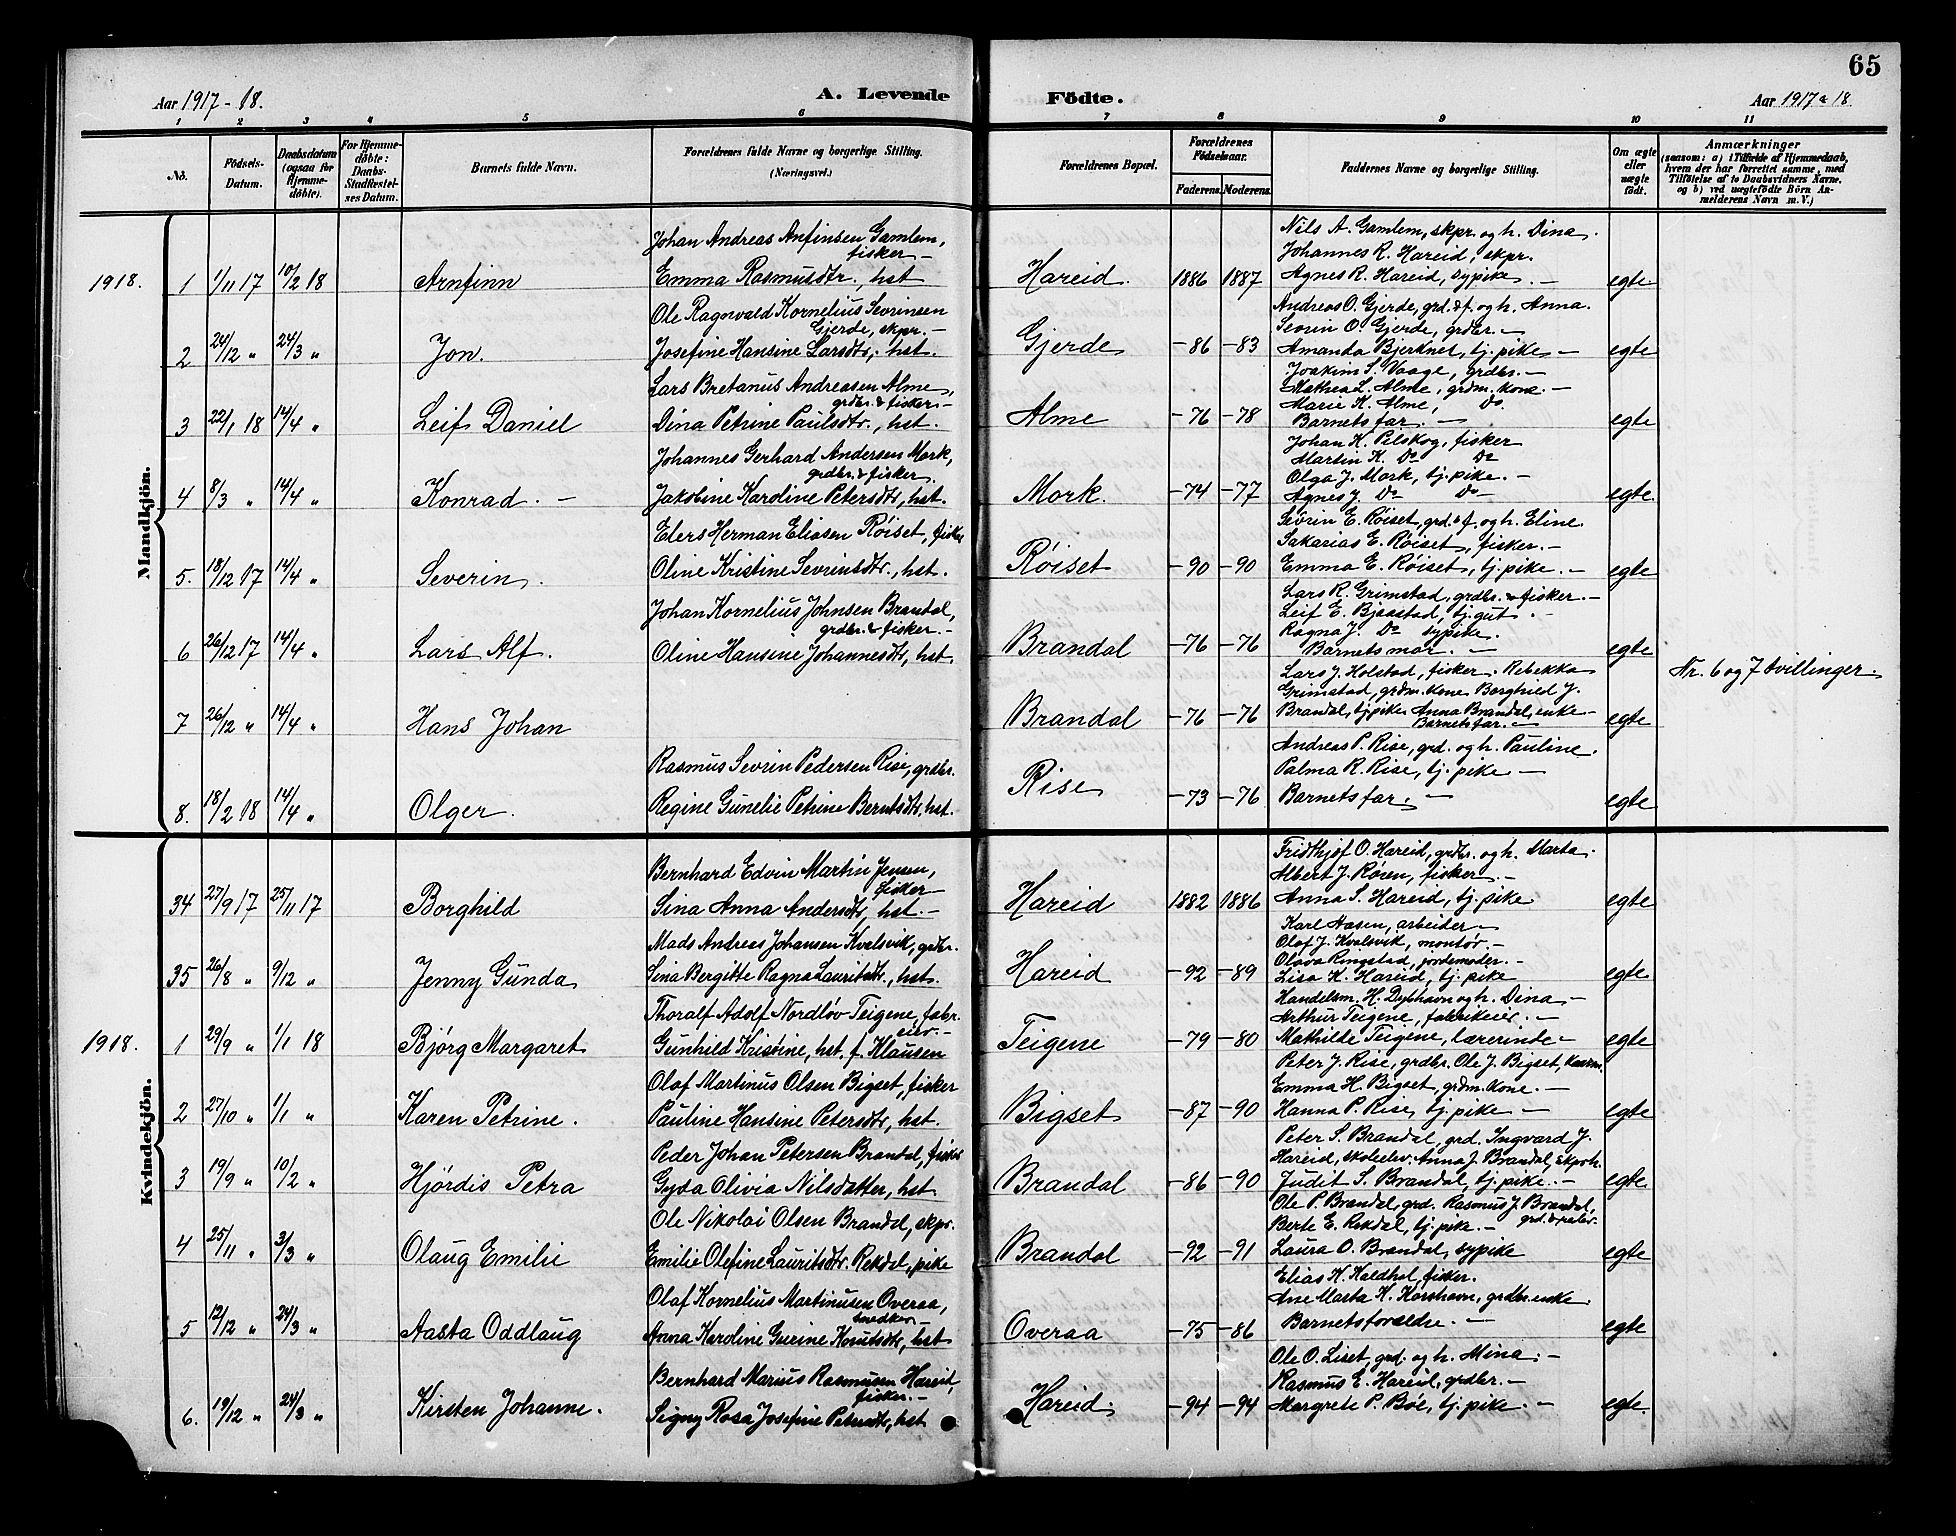 65
Aar 1917-18.
A. Levende Födte.
Aar 1917 & 18.
1 2 3 4 5 6 7 8 9 10 11
No.
Födsels-Datum.
Daabsdatum (ogsaa for Hjemmedöbte).
For Hjemmedöbte: Daabs-Stadfæstelses Datum.
Barnets fulde Navn.
Forældrenes fulde Navne og borgerlige Stilling. (Næringsvei.)
Forældrenes Bopæl.
Forældrenes Födselsaar.
Faderens. Moderens.
Faddernes Navne og borgerlige Stilling.
Om ægte eller uægte födt.
Anmærkninger
(saasom: a) i Tilfælde af Hjemmedaab, hvem der har forrettet samme, med Tilföielse af to Daabsvidners Navne, og b) ved uægtefödte Börn Anmelderens Navn m. V.)
Mandkjön.
1918.
1 1/11 17 10/2 18 Arnfinn
Johan Andreas Anfinsen Gamlem, fisker -
Emma Rasmusdtr., hst
Hareid. 1886 1887
Nils A. Gamlem, skpr. og h. Dina.
Johannes R. Hareid, skpr.
Agnes R. Hareid, sypike. -
egte
2 24/12 " 24/3 " Jon.
Ole Ragnvald Kornelius Sevrinsen Gjerde, skpr. -
Josefine Hansine Larsdtr., hst.
Gjerde -86 -83
Andreas O. Gjerde, grd. & f. og h. Anna.
Sevrin O. Gjerde, grdbr. -
Amanda Bjerknes, tj. pike -
egte
3 22/1 18 14/4 " Leif Daniel
Lars Bretanus Andreasen Alme, grdbr. & fisker -
Dina Petrine Paulsdtr., hst.
Alme -76 -78
Joakim S. Vaage, grdbr. -
Mathea L. Alme, grdm. kone. -
Marie K. Alme, Do.
Barnets far. -
egte
4 8/3 " 14/4 " Konrad. -
Johannes Gerhard Andersen Mork, grdbr. & fisker.
Jakobine Karoline Petersdtr, hst.
Mork. -74 -77
Johan K. Pilskog, fisker
Martin K. Do Do
Olga J. Mork, tj. pike. -
Agnes J. Do Do -
egte.
5. 18/12 17 14/4 " Severin.
Elers Herman Eliasen Röiset, fisker
Oline Kristine Sevrinsdtr., hst.
Röiset -90 -90
Sevrin E. Röiset, grd. & f. og h. Eline
Sakarias E. Röiset, fisker. -
Emma E. Röiset, tj. pike. -
egte
6 26/12 17 14/4 " Lars Alf.
Johan Kornelius Johnsen Brandal, grdbr. & fisker -
Oline Hansine Johannesdtr, hst.
Brandal -76 -76
Lars R. Grimstad, grdbr. & fisker. -
Leif E. Bjaastad, tj. gut. -
Ragna J. Do sypike.
Barnets mor. -
egte
Nr. 6 og 7 tvillinger
7 26/12 " 14/4 " Hans Johan
Brandal -76 -76
Lars J. Holstad, fisker. Rebekka
Grimstad, grdm. kone Borghild J.
Brandal, tj. pike. Anna Brandal, enke -
Barnets far. -
egte
8. 18/2 18 14/4 " Olger.
Rasmus Sevrin Pedersen Rise, grdbr.
Regine Gunelie Petrine Berntsdtr, hst.
Rise -73 -76
Andreas P. Rise, grd. og h. Pauline.
Palma R. Rise, tj. pike -
Barnets far. -
egte
Kvindekjön.
34 27/9 17 25/11 17 Borghild
Bernhard Edvin Martin Jensen, fisker -
Sina Anna Andersdtr, hst. -
Hareid 1882 1886
Fridthjof O. Hareid, grdbr. og h. Marta.
Albert J. Rören, fisker. -
Anna S. Hareid, tj. pike
egte
35 26/8 " 9/12 " Jenny Gunda
Mads Andreas Johansen Kvalsvik, grdbr.
Sina Bergitte Ragna Lauritsdtr., hst.
Hareid -92 -89
Karl Aasen, arbeider -
Olaf J. Kvalsvik, montör. -
Olava Ringstad, jordemoder. -
Lisa K. Hareid, tj. pike
egte
1918.
1 29/9 " 1/1 18 Björg Margaret
Thoralf Adolf Nordlöv Teigene, fabr. eier -
Gunhild Kristine, hst, f. Klausen
Teigene -79 -80
Handelsm. H. Dybhavn og h. Dina -
Arthur Teigene, fabrikeier. -
Mathilde Teigene, lærerinde -
egte
2 27/10 " 1/1 " Karen Petrine.
Olaf Martinus Olsen Bigset, fisker
Pauline Hansine Petersdtr, hst.
Bigset -87 -90
Peter J. Rise, grdbr. Ole J. Bigset,
Emma H. Bigset, grdm. kone. -
Hanna P. Rise, tj. pike -
egte
3 19/9 " 10/2 " Hjördis Petra
Peder Johan Petersen Brandal, fisker
Gyda Olivia Nilsdatter, hst
Brandal -86 -90
Peter S. Brandal, grd. Ingvard J.
Hareid, skoleelev. Anna J. Brandal, skprh.
Judit S. Brandal, tj. pike. -
egte
4 25/11 " 3/3 " Olaug Emilie
Ole Nikolai Olsen Brandal, skpr.
Emilie Olefine Lauritsdtr. Rekdal, pike
Brandal -92 -91
Ole P. Brandal, grd. Rasmus J. Brandal,
Berte E. Rekdal, tj. pik. -
Laura O. Brandal, sypike
egte
5 12/12 " 24/3 " Aasta Oddlaug
Olaf Kornelius Martinusen Overaa, snedker -
Anna Karoline Gurine Knutsdtr, hst
Overaa -75 -86
Elias H. Kaldhol, fisker.
Ane Marta K. Korshavn, grdbr. enke.
Barnets forældre. -
egte
6. 19/12 " 24/3 " Kirsten Johanne.
Bernhard Marius Rasmusen Hareid, fisker. -
Signy Rosa Josefine Petersdtr, hst
Hareid. -94 -94
Ole O. Liset, grd. og h. Mina. -
Rasmus E. Hareid, grdbr. -
Margrete P. Böe, tj. pike. -
egte.